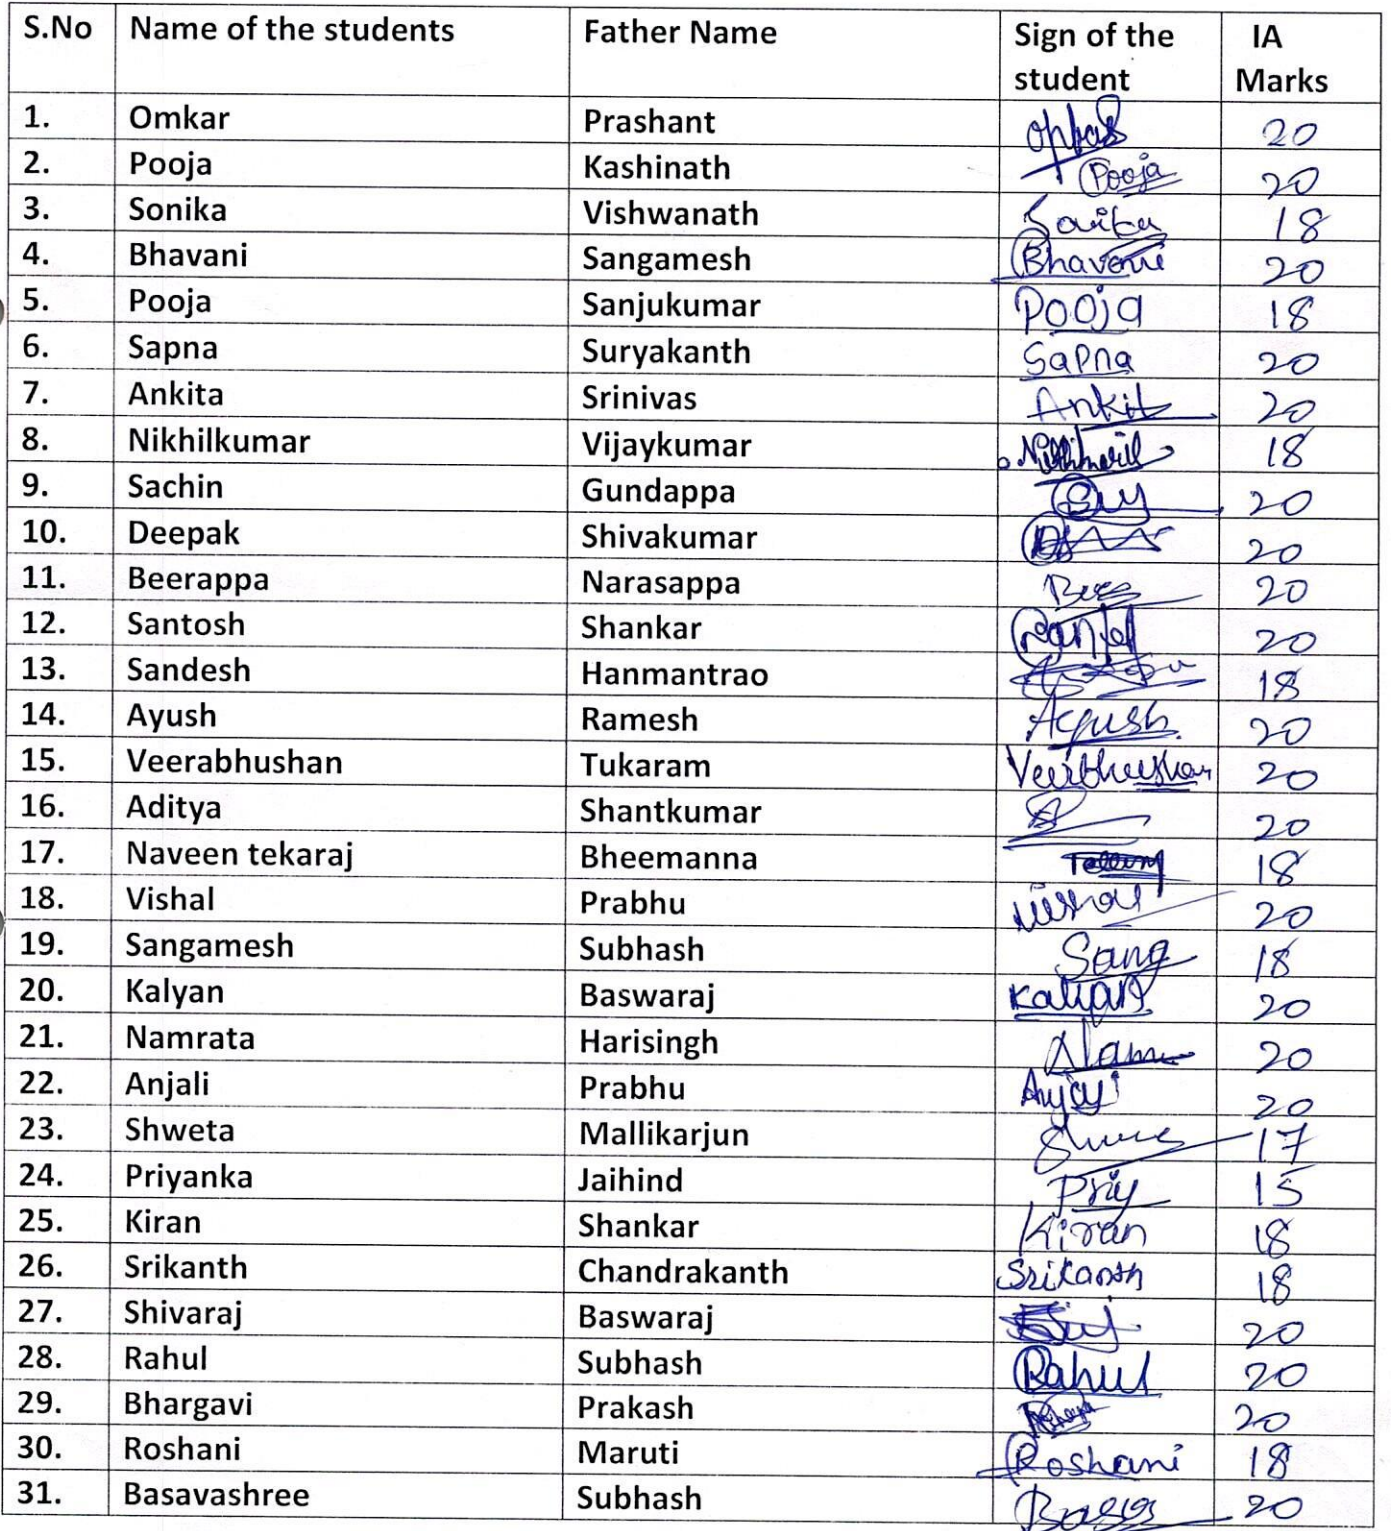 S.No Name of the students Father Name Sign of the student IA Marks
1. Omkar Prashant 20
2. Pooja Kashinath Pooja 20
3. Sonika Vishwanath 18
4. Bhavani Sangamesh Bhavani 20
5. Pooja Sanjukumar Pooja 18
6. Sapna Suryakanth Sapna 20
7. Ankita Srinivas Ankit 20
8. Nikhilkumar Vijaykumar 18
9. Sachin Gundappa 20
10. Deepak Shivakumar 20
11. Beerappa Narasappa 20
12. Santosh Shankar 20
13. Sandesh Hanmantrao 18
14. Ayush Ramesh Ayush 20
15. Veerabhushan Tukaram Veerbhushan 20
16. Aditya Shantkumar 20
17. Naveen tekaraj Bheemanna 18
18. Vishal Prabhu Vishal 20
19. Sangamesh Subhash Sang 18
20. Kalyan Baswaraj Kalyan 20
21. Namrata Harisingh Nam 20
22. Anjali Prabhu 20
23. Shweta Mallikarjun 17
24. Priyanka Jaihind Priy 15
25. Kiran Shankar Kiran 18
26. Srikanth Chandrakanth Srikanth 18
27. Shivaraj Baswaraj 20
28. Rahul Subhash Rahul 20
29. Bhargavi Prakash 20
30. Roshani Maruti Roshani 18
31. Basavashree Subhash 20